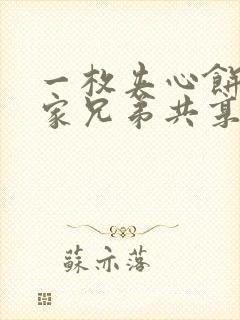 一枚夹心餅
家兄弟共某
蘇亦落